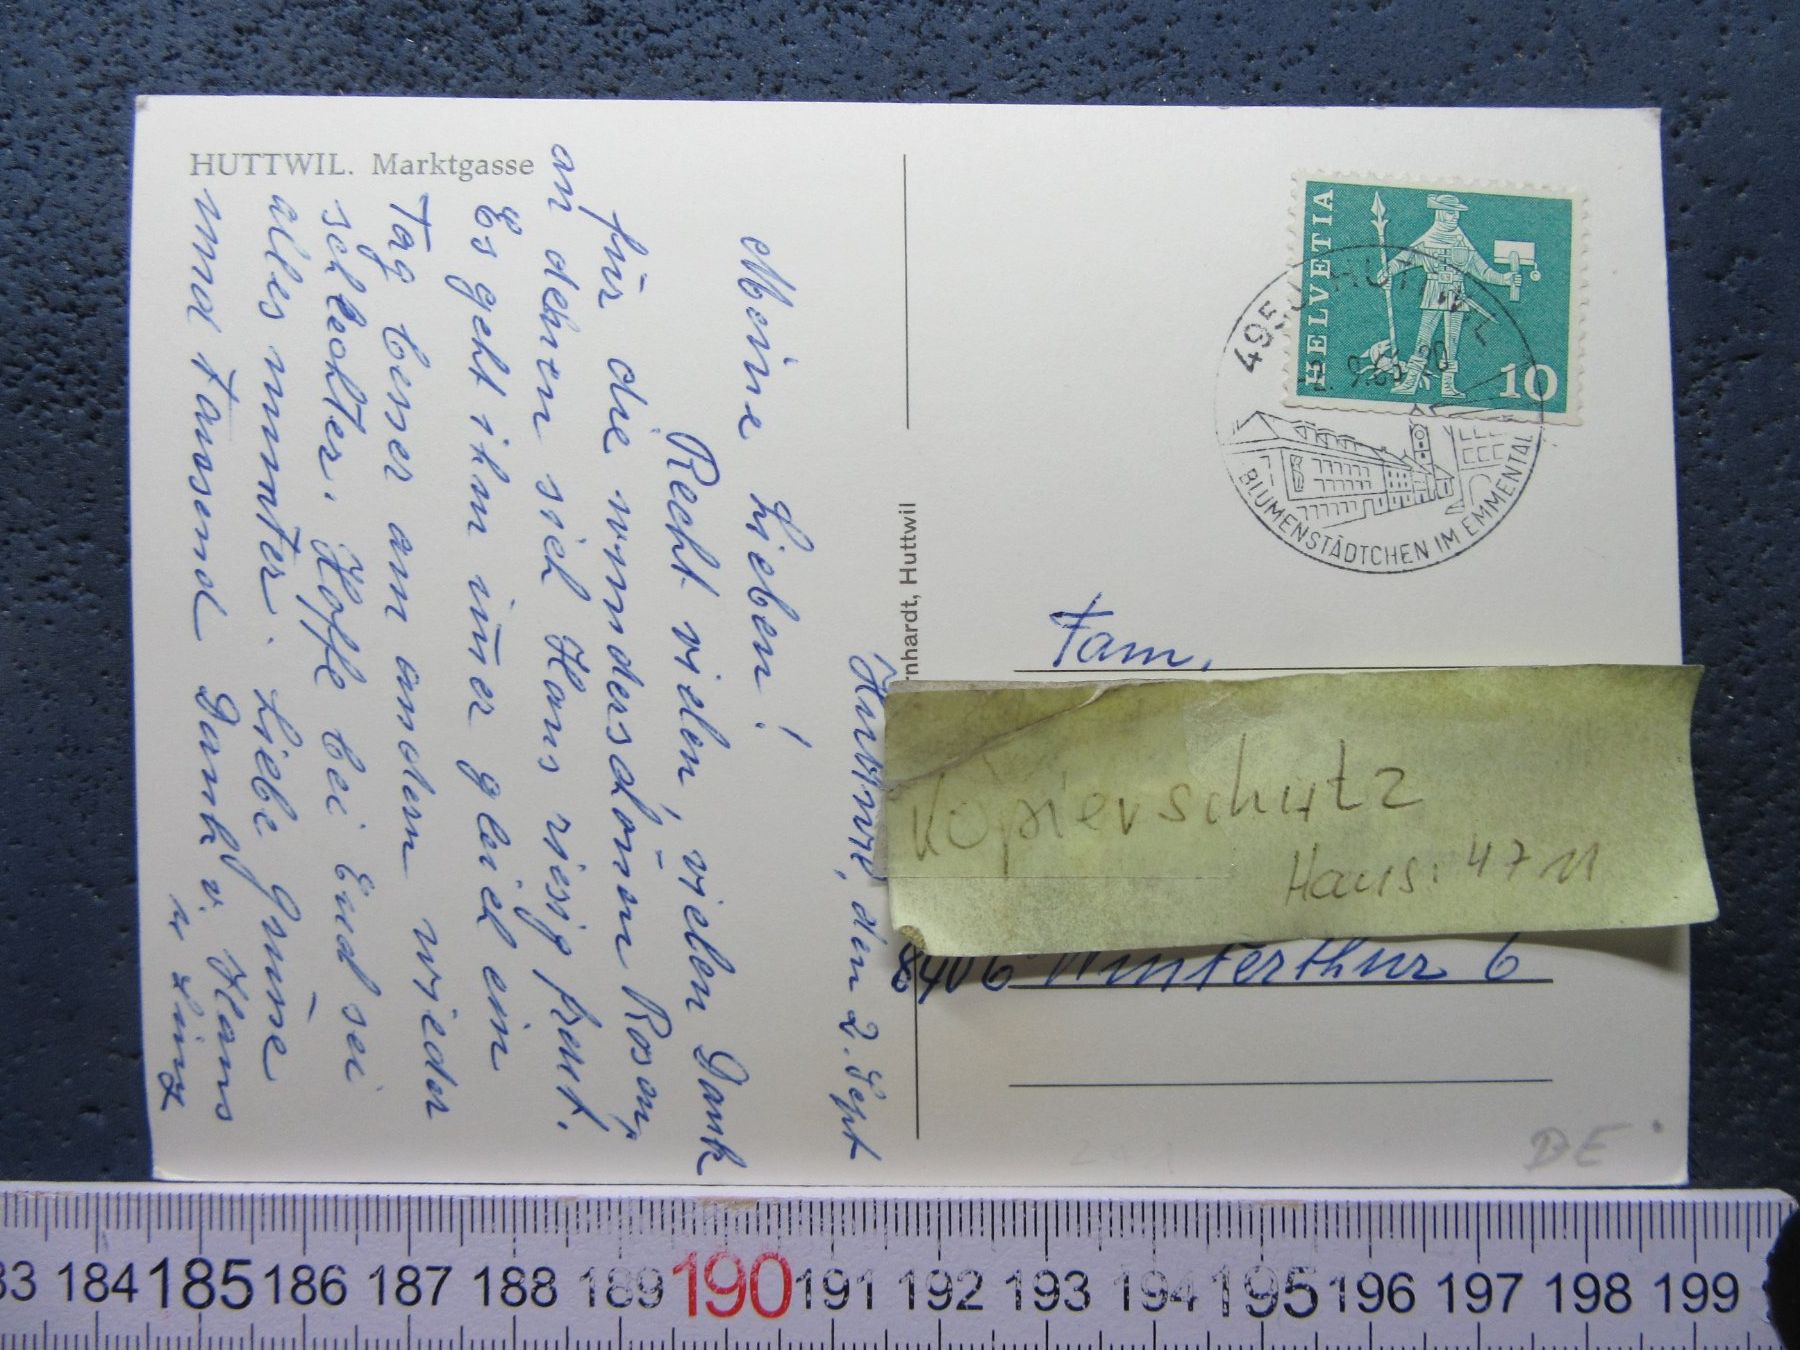 HUTTWIL. Marktgasse
Huttwil, den 2. Sept
Meine Lieben!
Recht vielen, vielen Dank
für die wunderschönen Rosen,
an denen sich Hans riesig freut.
Es geht ihm im̄er gleich ein
Tag besser am andern wieder
schlechter. Hoffe bei Euch sei
alles munter. Liebe Grüsse
und tausend Dank v. Hans
u.
rnhardt, Huttwil
HELVETIA
10
4950 HUTTWIL
BLUMENSTÄDTCHEN IM EMMENTAL
Fam.
Kopierschutz
Haus: 4711
8406 Winterthur 6
BE
184 185 186 187 188 189 190 191 192 193 194 195 196 197 198 199